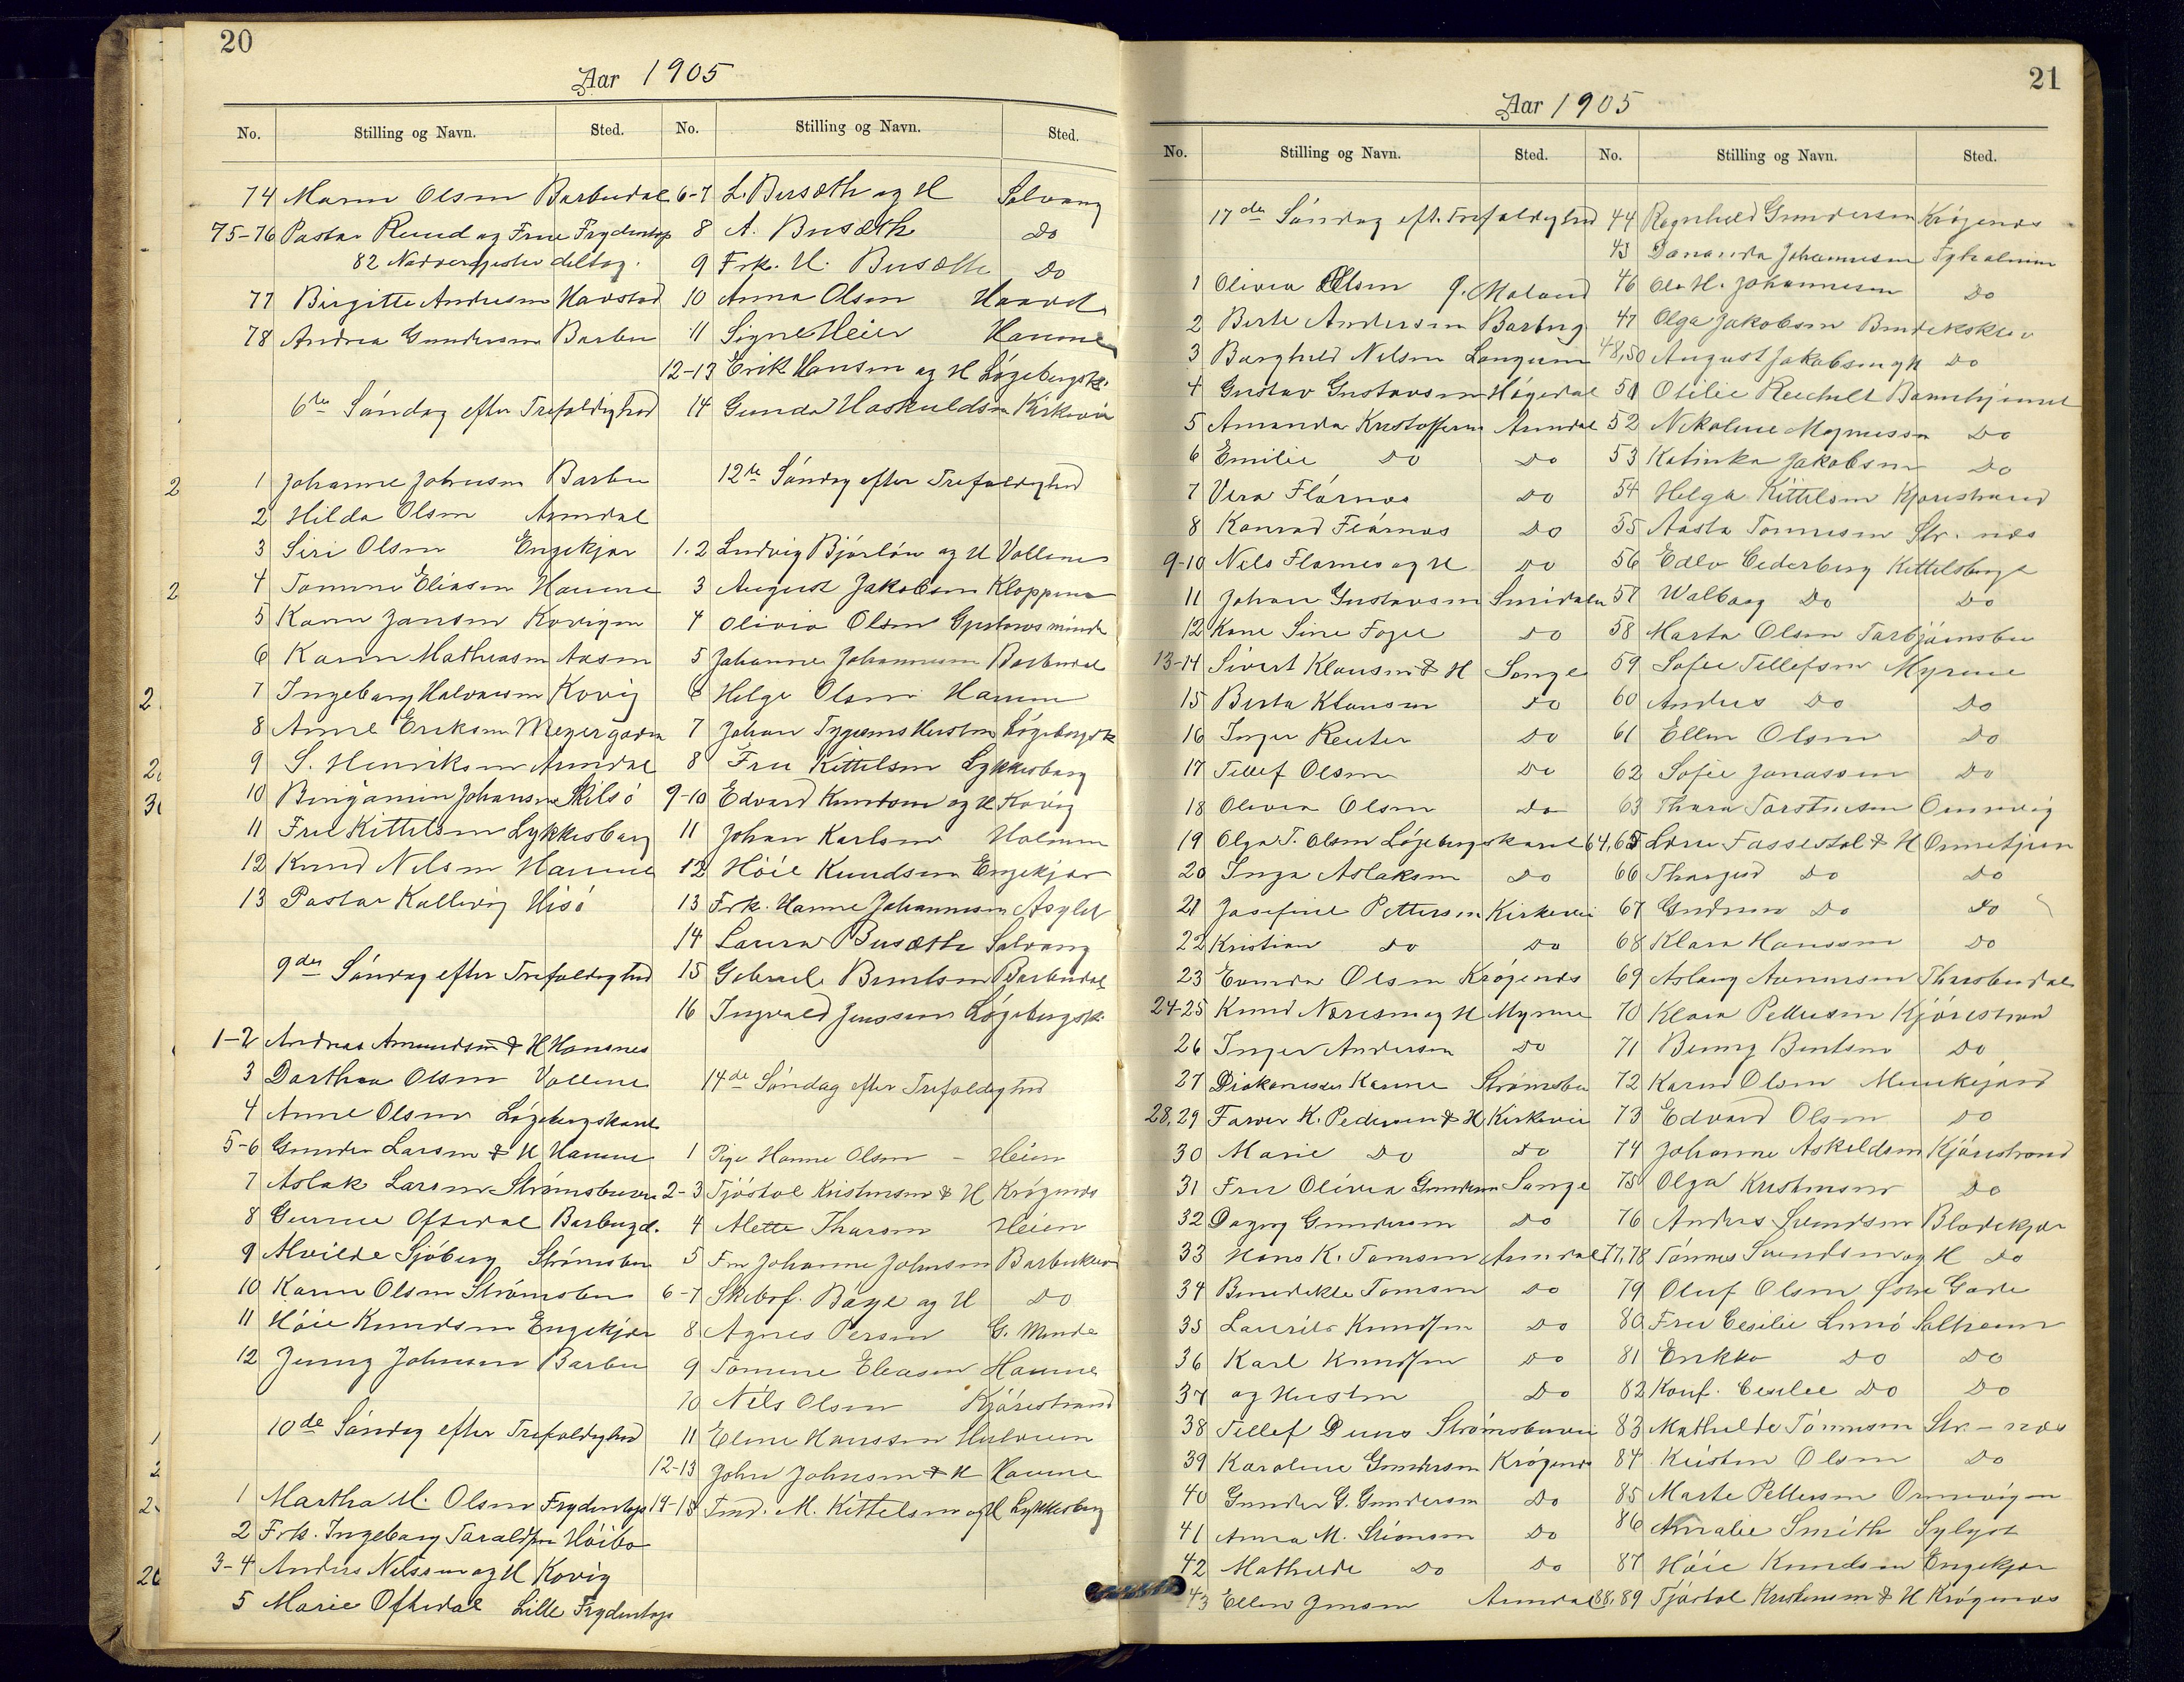 20
Aar 1905
No. Stilling og Navn. Sted.
74 Maren Olsen Barbudal
75-76 Pastor Ruud og Frue Frydentop
82 Nadvergjester deltog.
77 Birgitte Andresen Havstad
78 Andrea Gundersen Barbu
6te Søndag efter Trefoldighed
1 Johanne Johnsen Barbu
2 Hilda Olsen Arendal
3 Siri Olsen Engekjær
4 Tomine Eliasen Havne
5 Karen Jansen Kovigen
6 Karen Mathiasen Aasen
7 Ingeborg Halvorsen Kovig
8 Anne Eriksen Meyergaden
9 S. Henriksen Arendal
10 Bengamin Johansen Skilsö
11 Fru Kittelsen Lykkesborg
12 Knud Nilsen Havne
13 Pastor Kallevig Hisö
9de Søndag efter Trefoldighed
1-2 Andreas Amundsen & H Hansnes
3 Dorthea Olsen Vollene
4 Anne Olsen Lögebergskard
5-6 Gunder Larsen & H Havne
7 Aslak Larsen Strömsbuveien
8 Gunne Oftedal Barbugd.
9 Alvilde Sjöberg Strömsbu
10 Karen Olsen Strömsbu
11 Höie Knudsen Engekjær
12 Jenny Johnsen Barbu
10de Søndag efter Trefoldighed
1 Martha M. Olsen Frydentop
2 Frk. Ingeborg Taraldsen Höibo
3-4 Anders Nilssen og H Kovig
5 Marie Oftedal Lille Frydentop
No. Stilling og Navn. Sted.
6-7 L. Busæth og H Solvang
8 A. Busæth Do
9 Frk. H. Busæth Do
10 Anna Olsen
11 Signe Heier Havne
12-13 Erik Hansen og H Lögebergsk.
14 Gunda Haskuldsen Kirkevei
12te Søndag efter Trefoldighed
1.2 Ludvig Björlön og H Vollene
3 August Jakobsen Kloppene
4 Olivia Olsen Gustavsminde
5 Johanne Johannesen Barbudal
6 Helge Olsen Havne
7 Johan Hustru Lögebergsk
8 Fru Kittelsen Lykkesborg
9-10 Edvard Knudsen og H Kovig
11 Johan Karlsen Holmen
12 Höie Knudsen Engekjær
13 Frk. Hanne Johannesen Asylet
14 Laura Busæth Solvang
15 Gabriel Berntsen Barbudal
16 Ingvald Jenssen Lögebergsk.
14de Søndag efter Trefoldighed
1 Pige Hanne Olsen - Heien
2-3 Tjöstol Kristensen & H Krögenes
4 Alette Tharsen Heien
5 Fru Johanne Johnsen Barbukleiv
6-7 Skibsf. Böye og H Do
8 Agnes Persen G. Minde
9 Tomine Eliasen Havne
10 Nils Olsen Kjörestrand
11 Eline Hanssen
12-13 John Johnsen & H Havne
14-15 Tmd. M. Kittelsen og H Lykkesborg
21
Aar 1905
No. Stilling og Navn. Sted.
17de Søndag eft. Trefoldighed
1 Olivia Olsen Ö. Moland
2 Berte Andersen Barbug
3 Borghild Nilsen Langum
4 Gustav Gustavsen Högedal
5 Amanda Kristoffersen Arendal
6 Emilie Do Do
7 Vera Flörnæs Do
8 Konrad Flörnæs Do
9-10 Nils Flörnes og H Do
11 Johan Gustavsen Smidalen
12 Kone Sine Foger Do
13-14 Sivert Klausen & H Songe
15 Berta Klausen Do
16 Inger Reuter Do
17 Tellef Olsen Do
18 Olivia Olsen Do
19 Olga T. Olsen Lögebergskard
20 Inga Aslaksen Do
21 Josefine Pettersen Kirkevei
22 Kristian Do Do
23 Evinda Olsen Krögenes
24-25 Knud Næresen og H Myrene
26 Inger Andersen Do
27 Diakonisse Karine Strömsbu
28,29 Farver K. Pedersen & H Kirkevei
30 Marie Do Do
31 Fru Olivia Gundersen Songe
32 Dagny Gundersen Do
33 Hans K. Tomsen Arendal
34 Benedikte Tomsen Do
35 Laurits Knudsen Do
36 Karl Knudsen Do
37 og Hustru Do
38 Tellef Duus Strömsbuvei
39 Karoline Gundersen Krögenes
40 Gunder G. Gundersen Do
41 Anna M. Simonsen Do
42 Mathilde Do Do
43 Ellen Jensen Arendal
No. Stilling og Navn. Sted.
44 Ragnhild Gundersen Krögenes
45 Johannesen
46 Ole H. Johannesen Do
47 Olga Jakobsen Bendikskleiv
48,50 August Jakobsen og H Do
51 Otilie Reichelt Barnehjemmet
52 Nikoline Magnussen Do
53 Katinka Jakobsen Do
54 Helga Kittelsen Kjörestrand
55 Aasta Tønnesen Str. næs
56 Edle Cederberg Kittelsberget
57 Walborg Do Do
58 Marta Olsen Torbjörnsbu
59 Sofie Tellefsen Myrene
60 Anders Do Do
61 Ellen Olsen Do
62 Sofie Jonassen Do
63 Thora Torstensen Ormevig
64,65 Lars Fassestøl & H Ormetjern
66 Thorgerd Do Do
67 Gudrun Do Do
68 Klara Hanssen Do
69 Aslaug Aanensen Thorsbudal
70 Klara Pettersen Kjörestrand
71 Benny Bentsen Do
72 Karen Olsen Munkejord
73 Edvard Olsen Do
74 Johanne Askildsen Kjörestrand
75 Olga Kristensen Do
76 Anders Svendsen Blødekjær
77,78 Tønnes Svendsen og H Do
79 Oluf Olsen Østre Gade
80 Fru Cesilie Lunö Solheim
81 Enkke Do Do
82 Konf. Cesilie Do Do
83 Mathilde Tønnesen Str-næs
84 Kristen Olsen Do
85 Marte Pettersen Ormevigen
86 Amalie Smith
87 Höie Knudsen Engekjær
88,89 Tjöstol Kristensen & H Krögenes